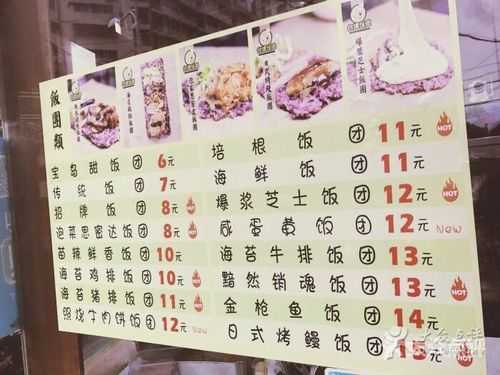 飯團類
宝岛甜饭团 6元
传统饭团 7元
招牌饭团 8元 HOT
泡菜思密达饭团 8元 HOT
苗辣鲜香饭团 10元
海苔鸡排饭团 10元 HOT
海苔猪排饭团 11元 HOT
照烧牛肉饼饭团 12元 New
培根饭团 11元 HOT
海鲜饭团 11元
爆浆芝士饭团 12元 HOT
咸蛋黄饭团 12元 New
海苔牛排饭团 13元
黯然销魂饭团 13元 HOT
金枪鱼饭团 14元
日式烤鳗饭团 元 HOT
大众点评